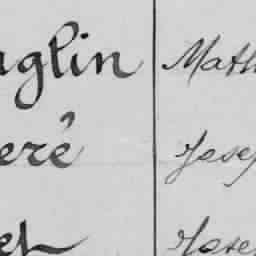 uglin Math
eré Josep
et Josep